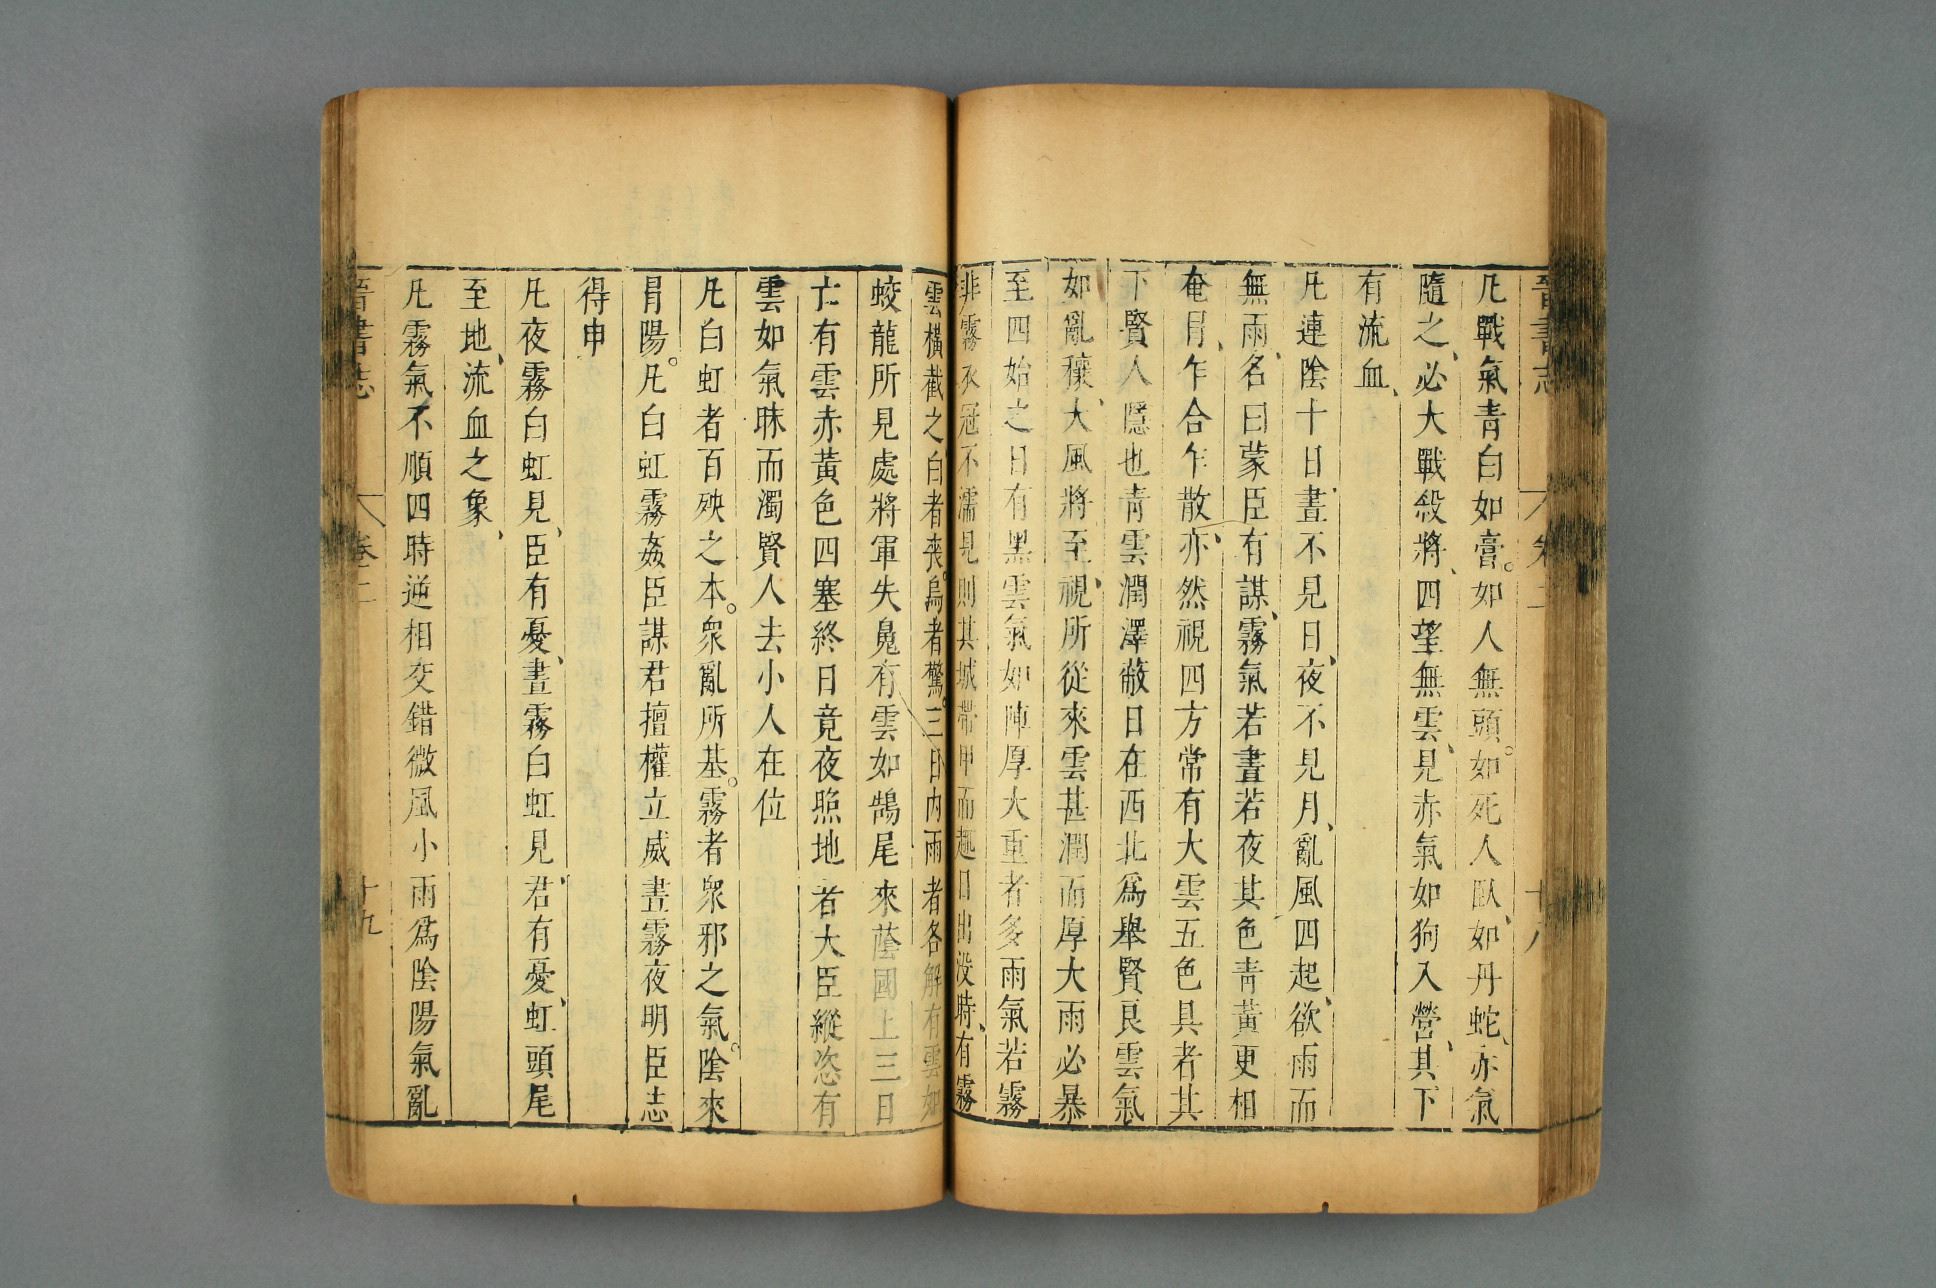 晉書志 卷二 十八
凡戰氣青白如膏。如人無頭。如死人臥、如丹蛇、赤氣
隨之、必大戰殺將、四望無雲、見赤氣如狗入營、其下
有流血、
凡連陰十日、晝不見日、夜不見月、亂風四起、欲雨而
無雨、名曰蒙臣有謀、霧氣若晝若夜其色青黃更相
奄冐、乍合乍散、亦然視四方常有大雲五色具者其
下賢人隱也青雲潤澤蔽日在西北爲舉賢良雲氣
如亂穰、大風將至、視所從來雲甚潤而厚大雨必暴
至四始之日有黑雲氣如陣厚大重者多雨氣若霧
非霧衣冠不濡見則其城帶甲而趣日出没時、有霧
雲橫截之、白者喪。烏者驚。三日內雨者各解有雲如
蛟龍所見處將軍失魄有雲如鵠尾來蔭國上三日
亡有雲赤黃色四塞終日竟夜照地者大臣縱恣有
雲如氣昧而濁賢人去小人在位
凡白虹者百殃之本。衆亂所基。霧者衆邪之氣。陰來
冐陽。凡白虹霧姦臣謀君擅權立威晝霧夜明臣志
得申
凡夜霧白虹見、臣有憂、晝霧白虹見君、有憂、虹頭尾
至地、流血之象、
凡霧氣不順四時逆相交錯微風小雨爲陰陽氣亂
晉書志 卷二 十九